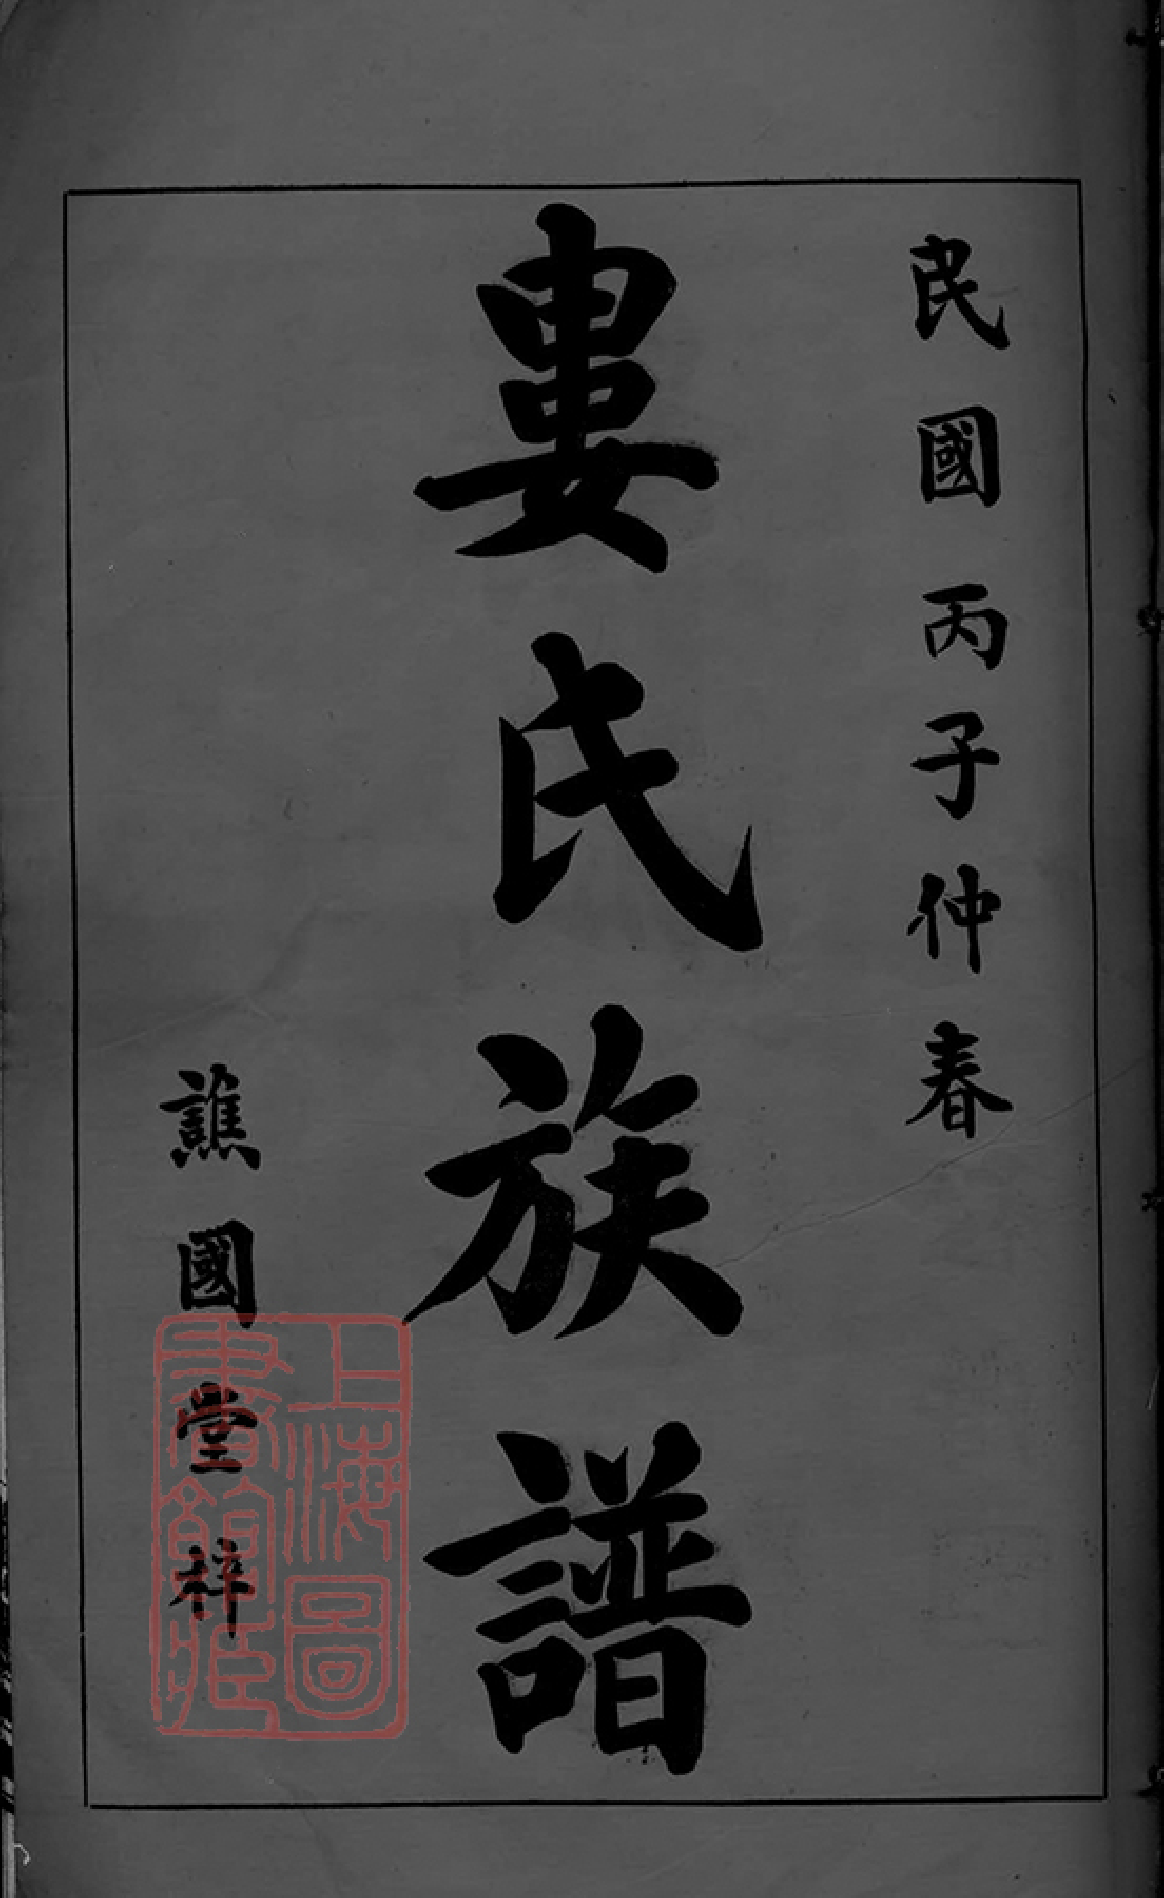 民國丙子仲春
婁氏族譜
譙國堂梓
上海圖
書館藏